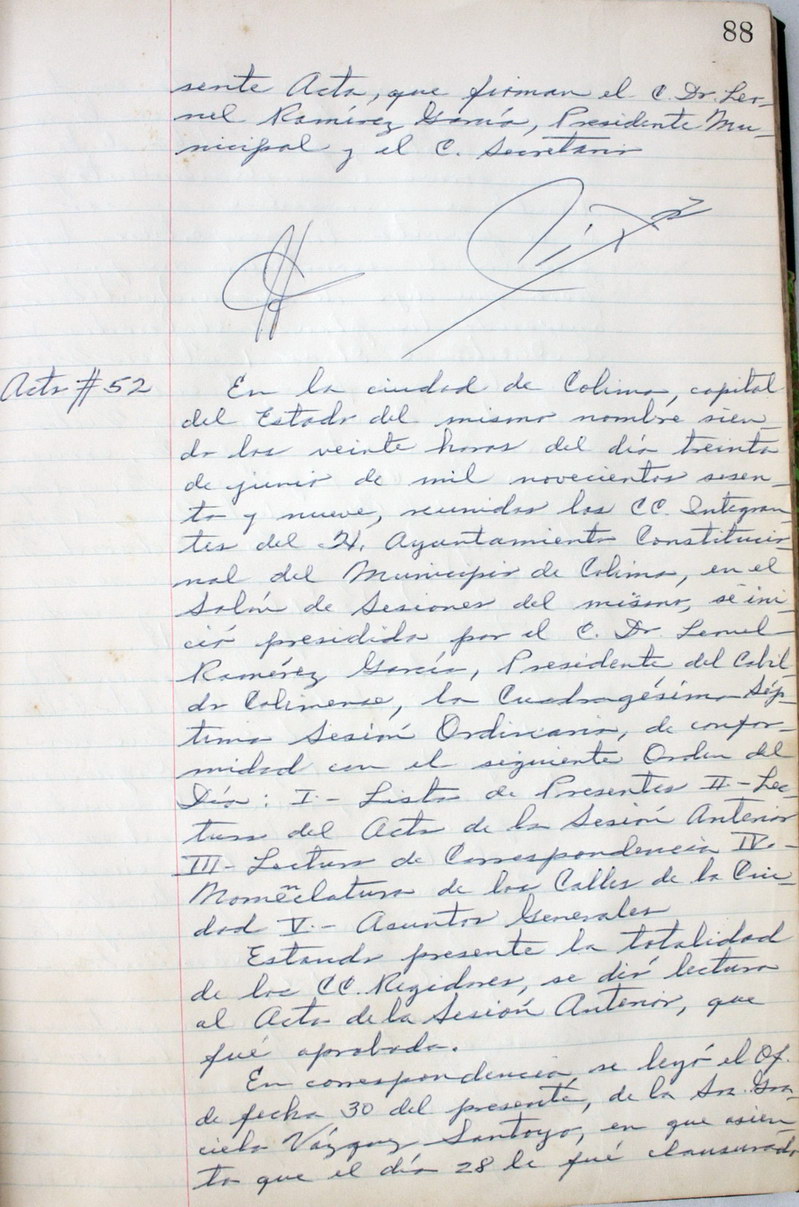 88
sente Acta, que firman el C. Dr. Leo-
nel Ramírez García, Presidente Mu-
nicipal y el C. Secretario
Acta # 52
En la ciudad de Colima, capital
del Estado del mismo nombre sien-
do las veinte horas del día treinta
de junio de mil novecientos sesen-
ta y nueve, reunidos los CC. Integran-
tes del H. Ayuntamiento Constitucio-
nal del Municipio de Colima, en el
Salón de Sesiones del mismo, se ini-
ció presidida por el C. Dr. Leonel
Ramírez García, Presidente del Cabil-
do Colimense, la Cuadragésima Sép-
tima Sesión Ordinaria, de confor-
midad con el siguiente Orden del
Día: I.- Lista de Presentes II- Lec-
tura del Acta de la Sesión Anterior
III- Lectura de Correspondencia IV.-
Nomenclatura de las Calles de la Ciu-
dad V.- Asuntos Generales
Estando presente la totalidad
de los CC. Regidores, se dió lectura
al Acta de la Sesión Anterior, que
fué aprobada.
En correspondencia se leyó el Of.
de fecha 30 del presente, de la Sra. Gra-
ciela Vázquez Santoyo, en que asien-
ta que el día 28 le fué clausurado